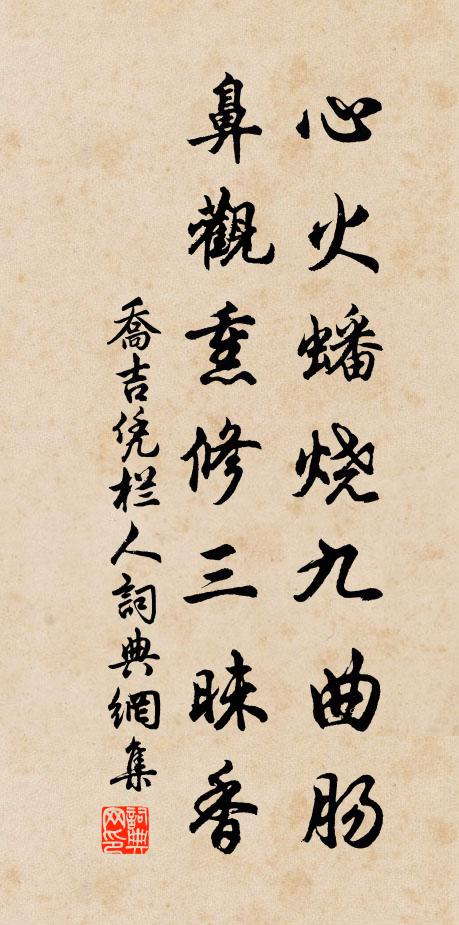 心火蟠烧九曲肠
鼻觀熏修三昧香
喬吉凭栏人詞典網集
詞典网印